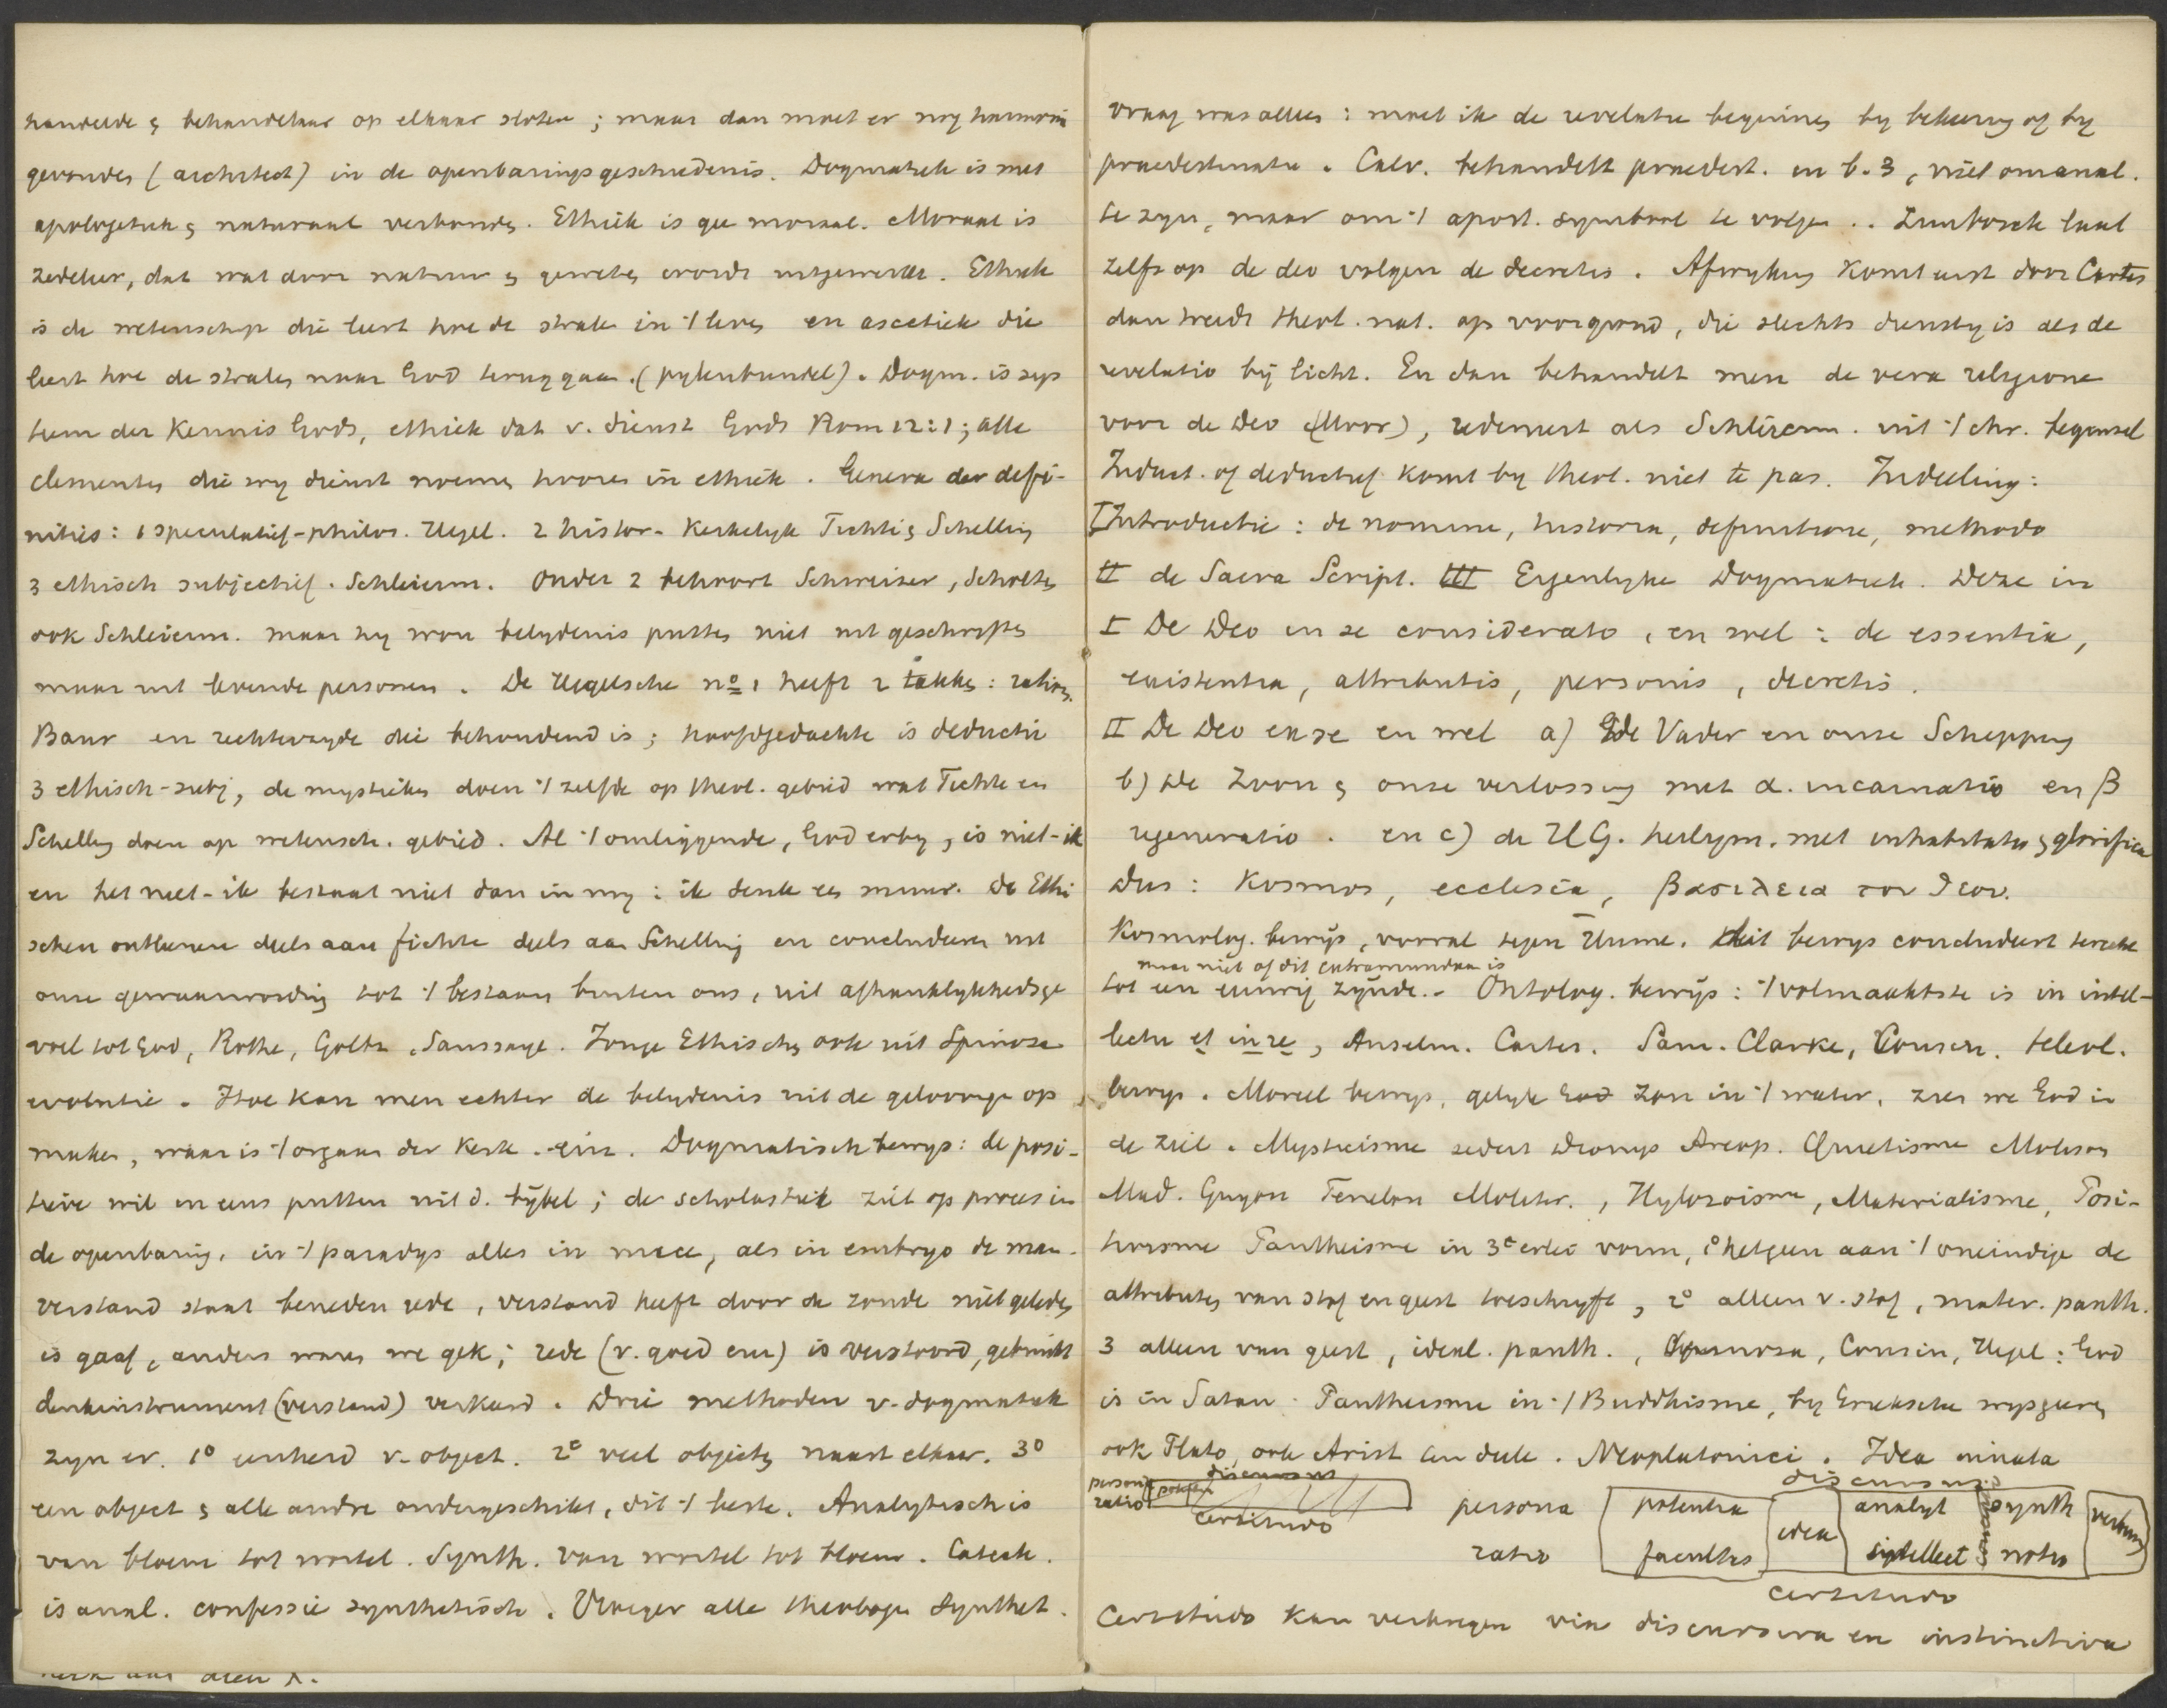 handelde & behandelaar op elkaar sloten ; maar dan moet er nog harmonie
gevonden (architect) in de openbaringsgeschiedenis. Dogmatiek is met
apologetiek & naturaal verbonden. Ethiek is gee moraal. Moraal is
zedeleer, dat wat door natuur & geweten wordt uitgewerkt. Ethiek
is de wetenschap die leert hoe de stralen in ·/· leven en ascetiek die
leert hoe de stralen naar God teruggaan. (pylenbundel). Dogm. is sys
teem der Kennis Gods, ethiek dat v. dienst Gods Rom 12:1; alle
elementen die wy dienst noemen hooren in ethiek . Genera der defi-
nities: 1 speculatief-philos. Hegel. 2 histor- Kerkelyk Fichte & Schelling
3 ethisch subjectief. Schleierm. Onder 2 behoort Schweizer, Scholten
ook Schleierm. maar hy wou belydenis putten niet uit geschriften
maar uit levende personen . De Hegelsche nº 1 heeft 2 takken :
Baur en rechterzyde die behoudend is ; hoofdgedachte is deductie
3 ethisch-subj, de mystieken doen ·/· zelfde op theol. gebied wat Fichte en
Schelling doen op wetensch. gebied. Al ·/· omliggende, God erby, is niet-ik
en het niet-ik bestaat niet dan in my : ik denk es muur. De Ethi
schen ontleenen deels aan fichte deels aan Schelling en concludeeren uit
onze gewaarwording tot ·/· bestaan buiten ons, uit afhanklykheidsge
voel tot God, Rothe, Goltz, Saussaye. Jonge Ethischen ook uit Spinoza
evolutie . Hoe kan men echter de belydenis uit de geloovige op
maken, waar is ·/· orgaan der Kerk . Dogmatisch bewys: de posi-
tieve wil in eens putten uit d. bybel ; de scholastiek ziet op proces in
de openbaring, in ·/· paradys alles in nuce, als in embryo de man.
verstand staat beneden rede, verstand heeft door de zonde niet geleden
is gaaf, anders waren we gek ; rede (v. goed enz) is verstoord, gebruikt
denkinstrument (verstand) verkeerd . Drie methoden v. dogmatiek
zyn er. 1º eenheid v. object. 2º veel objecten naast elkaar. 3º
een object & alle andre ondergeschikt, dit ·/· beste. Analytisch is
van bloem tot wortel. Synth. van wortel tot bloem. Catech.
is anal. confessie synthetisch . Vroeger alle theologen Synthet.
vraag was alleen : moet ik de revelatie beginnen by bekeering of by
praedestinatie . Calv. behandelt praedest. in b. 3, niet om anal.
te zyn, maar om ·/· apost. symbool te volgen .. Limborch laat
zelfs op de deo volgen de decretis . Afwyking komt eerst door Cartes
dan treedt theol. nat. op voorgrond, die slechts dienstig is als de
revelatio by licht. En dan behandelt men de vera religione
voor de Deo (Moor), redeneert als Schleierm. uit ·/· chr. beginsel
Induct. of deductief komt by theol. niet te pas. Indeeling:
I Introductie : de nomine, historia, definitione, methodo
II de Sacra Script. III Eigenlyke Dogmatiek. Deze in
I De Deo in se considerato, en wel : de essentia,
existentia, attributis, personis, decretis.
II De Deo ex se en wel a) de Vader en onze Schepping
b) De Zoon & onze verlossing met α. incarnatio en β
regeneratio . en c) de H.G. heiligm. met inhabitatio & glorifica
Dus : Kosmos, ecclesia, βασιλεια του θεου.
Kosmolog. bewys, vooral tegen Hume. dit bewys concludeert terecht
maar niet of dit extramundaan is
tot een eeuwig zynde.- Ontolog. bewys : ·/· volmaaktste is in intel-
lectu et in re, Anselm. Cartes. Sam. Clarke, Cousin. teleol.
bewys . Moreel bewys, gelyk God zon in ·/· water, zien we God in
de ziel . Mysticisme sedert Dionys Areop. Quietisme Molinos
Mad. Guyon Fenelon , Hylozoisme, Materialisme, Posi-
tivisme Pantheisme in 3erlei vorm, 1º hetgeen aan ·/· oneindige de
attributen van stof en geest toeschryft, 2º alleen v. stof, mater. panth.
3 alleen van geest, ideal. panth. , Spinoza, Cousin, Hegel : God
is in Satan . Pantheisme in ·/· Buddhisme, by Grieksche wysgeeren
ook Plato, ook Arist ten deele . Neoplatonici . Idea innata
persona discursus
ratio
certitudo
discursus
persona potentia idea analyt synth verbum
ratio facultas intellect notio
certitudo
Certitudo kan verkregen via discursiva en instinctiva